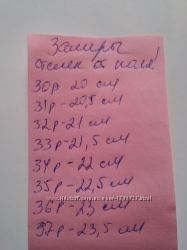 Замеры
стелек от носка!
30р-20 см
31р-20,5 см
32р-21 см
33р-21,5 см
34р-22 см
35р-22,5 см
36р-23 см
37р-23,5 см